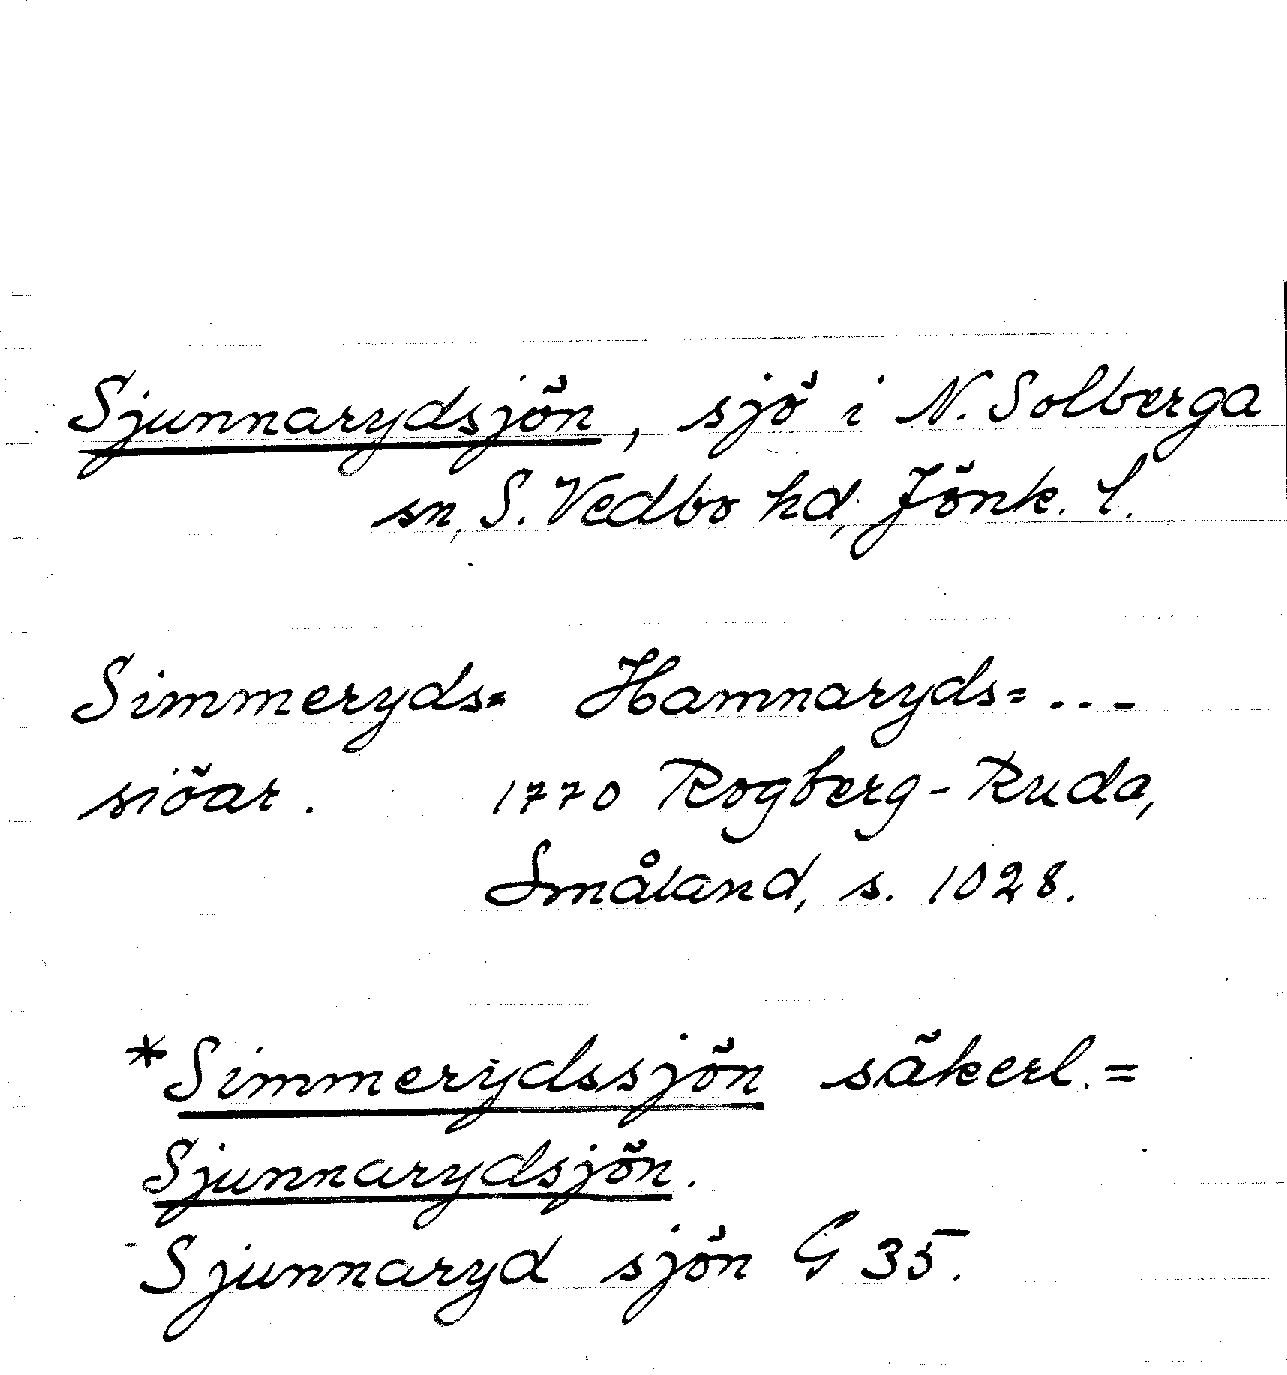 Sjunnarydsjön, sjö i N. Solberga
sn, S. Vedbo hd, Jönk. l.
Simmeryds= Hamnaryds= . . -
siöar. 1770 Rogberg-Ruda,
Småland, s. 1028.
*Simmerydssjön säkerl. =
Sjunnarydsjön.
Sjunnaryd sjön G 35.